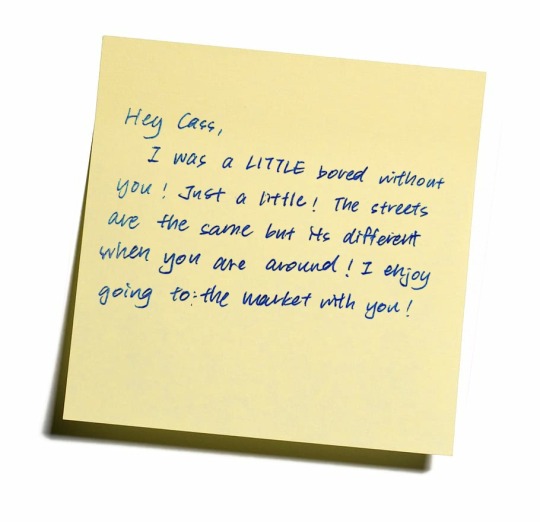 Hey Cass,
I was a LITTLE bored without
you! Just a little! The streets
are the same but its different
when you are around! I enjoy
going to the market with you!